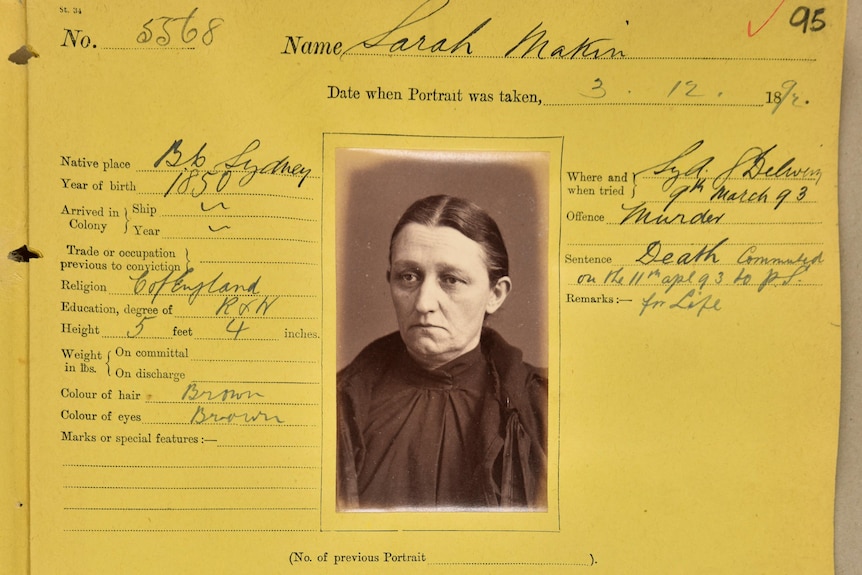 St. 34
95
No. 5568 Name Sarah Makin
Date when Portrait was taken, 3. 12. 1892.
Native place Bb Sydney
Year of birth 1850
Arrived in Colony } Ship "
Year "
Trade or occupation previous to conviction }
Religion C of England
Education, degree of R & W
Height 5 feet 4 inches.
Weight in lbs. { On committal
On discharge
Colour of hair Brown
Colour of eyes Brown
Marks or special features:—
Where and when tried } Syd. G Delivery
9th March 93
Offence Murder
Sentence Death Commuted
on the 11th apl 93 to P.S.
Remarks:— for Life
(No. of previous Portrait ).